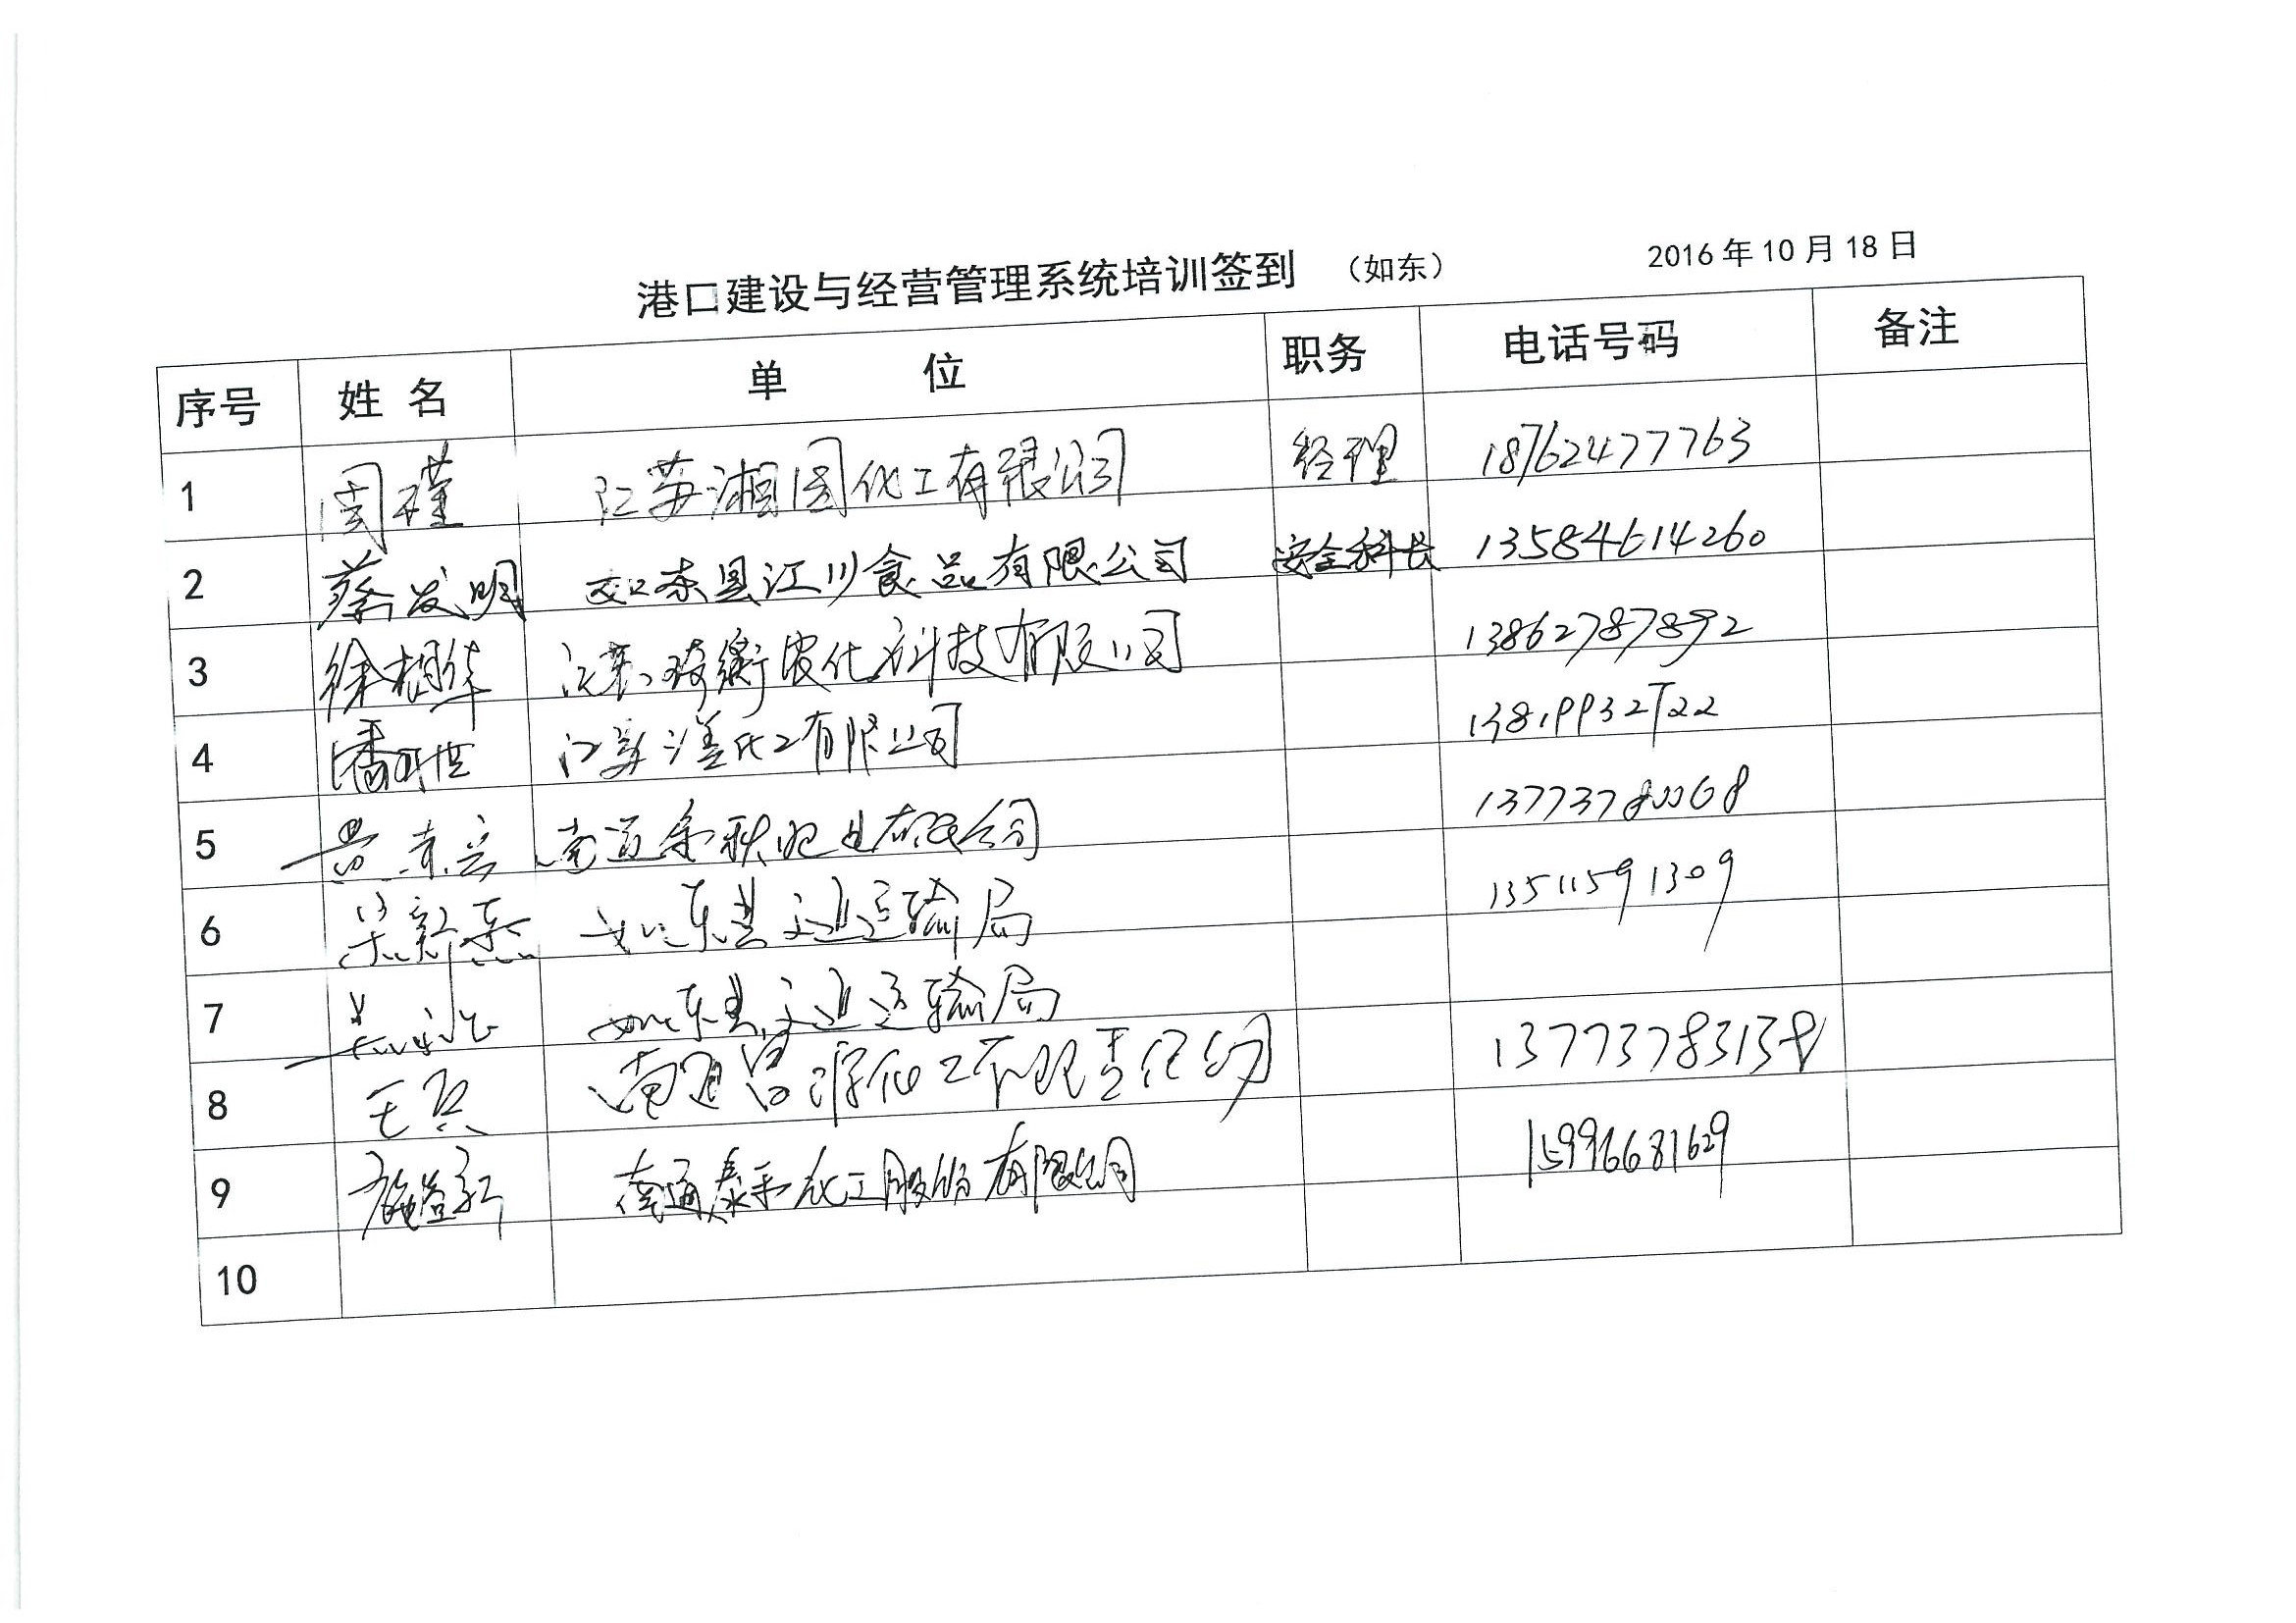 港口建设与经营管理系统培训签到 （如东） 2016年10月18日
序号 姓名 单位 职务 电话号码 备注
1 周瑾 江苏湘园化工有限公司 经理 18762477763
2 蔡发明 如东县江川食品有限公司 安全科长 13584614260
3 徐相华 江苏 农化科技有限公司 13862787892
4 潘 江苏 化工有限公司
5 黄 南通 有限公司 13773780068
6 如东县交通运输局 13511591309
7 如东县交通运输局
8 王兵 南通 化工有限责任公司 13773783138
9 施 南通泰禾化工股份有限公司 15996681629
10